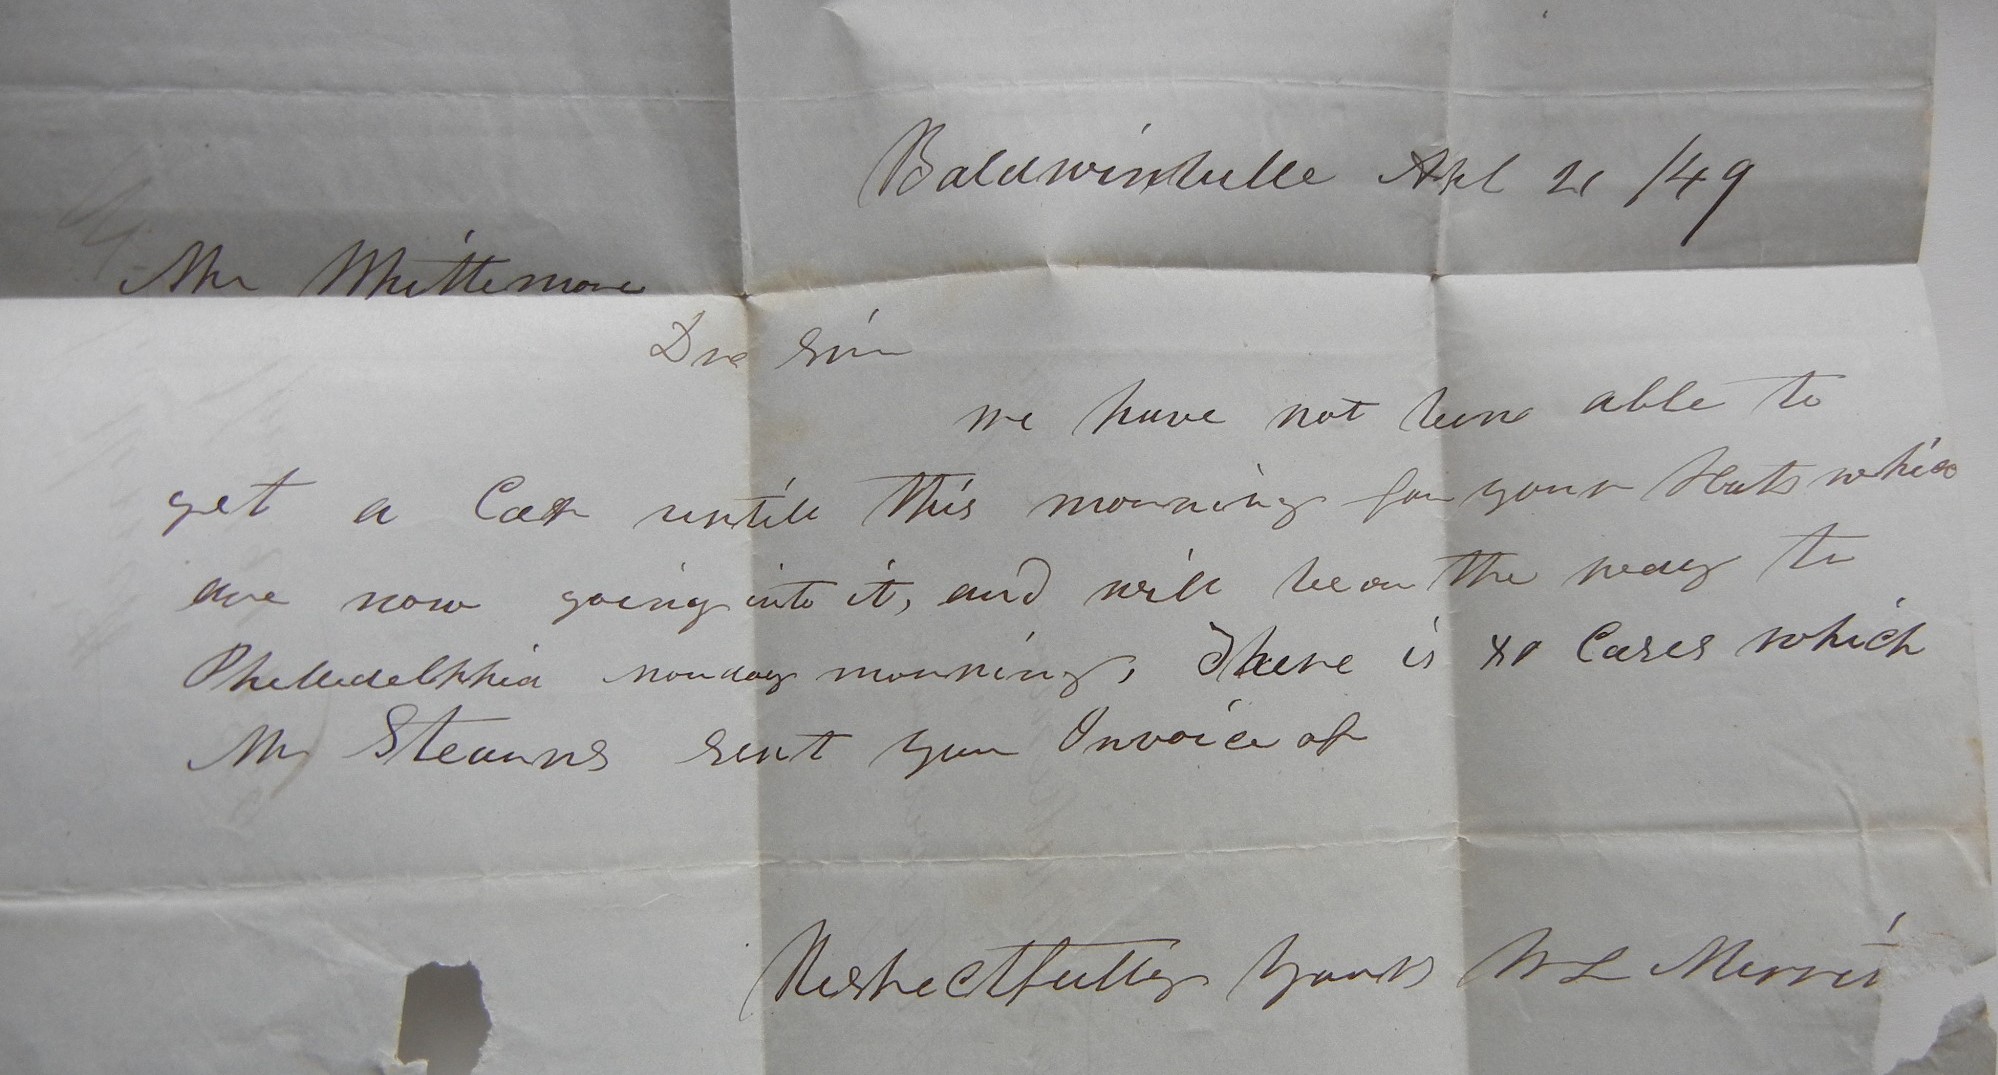 Baldwinville Apl 21 /49
Mr Whittemore
Dre Sir
we have not been able to
get a Car untill this morning for your Hats which
are now going into it, and will be on the way to
Philledelphia monday morning, There is Cases which
Mr Stearns sent you Invoice of
Respectfully Yours W L Merri